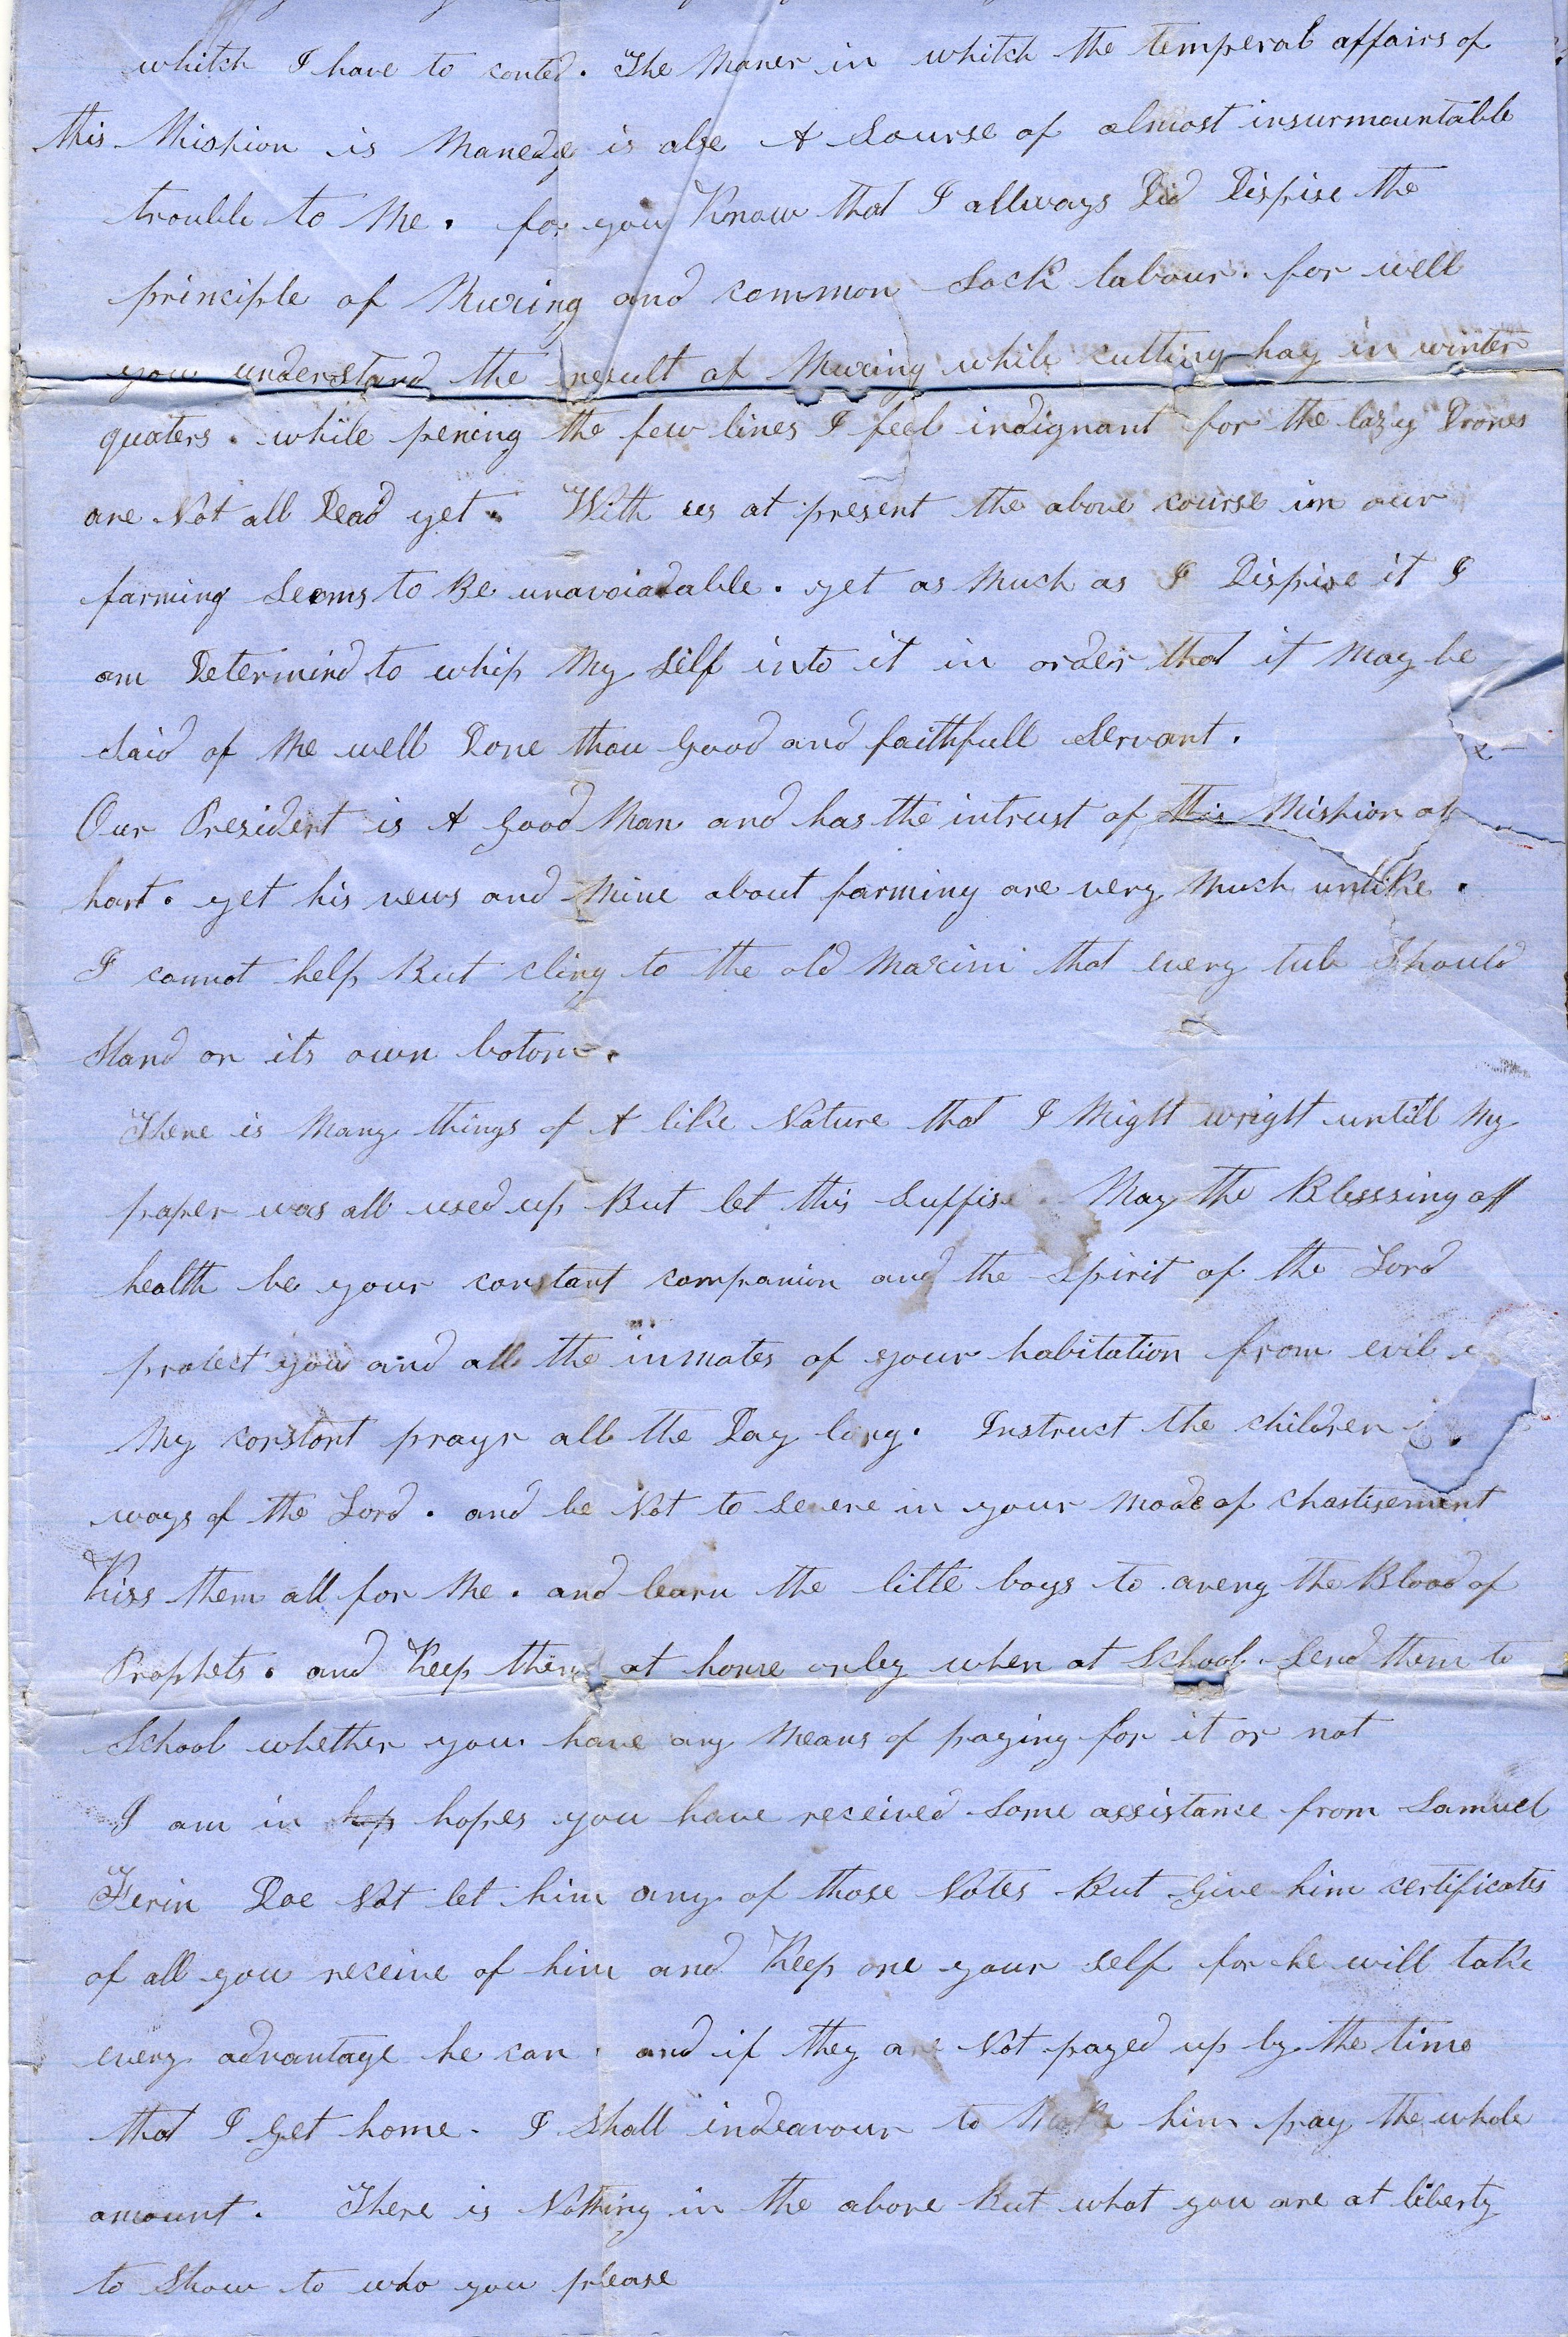 whitch I have to conted. The Maner in whitch the temperal affairs of
this Mishion is Manedge is alse A Sourse of almost insurmountable
trouble to Me. for you Know that I allways Did Dispise the
principle of Mixing and common Sock labour. for well
you understand the result of Mixing while cutting hay in winter
quaters. while pening the few lines I feel indignant for the lazy Drones
are Not all Dead yet. With us at present the above course in our
farming Seems to Be unavoiadable. yet as Much as I Dispise it I
am Determind to whip My Self into it in order that it May be
Said of Me well Done thou Good and faithfull Servant.
Our President is A Good Man and has the intrust of this Mishion at
hart. yet his vews and Mine about farming are very Much unlike.
I cannot help But cling to the old Maxim that every tub Should
Stand on its own botom.
There is Many things of A like Nature that I Might wright untill My
paper was all used up But let this Suffise. May the Blesssing off
health be your constant companion and the Spirit of the Lord
protect you and all the inmates of your habitation from evil
My constant prayr all the Day long. Instruct the children
ways of the Lord. and be Not to Severe in your Mode of Chastisement
Kiss them all for Me. and learn the little boys to aveng the Blood of
Prophets. and Keep them at home only when at School. Send them to
School whether you have any Means of paying for it or not
I am in hop hopes you have received Some assistance from Samuel
Ferin Doe Not let him any of those Notes But Give him certificates
of all you receive of him and Keep one your Self for he will take
every advantage he can. and if they are Not payed up by the time
that I Get home. I Shall indeavour to Make him pay the whole
amount. There is Nothing in the above But what you are at liberty
to Show to who you please